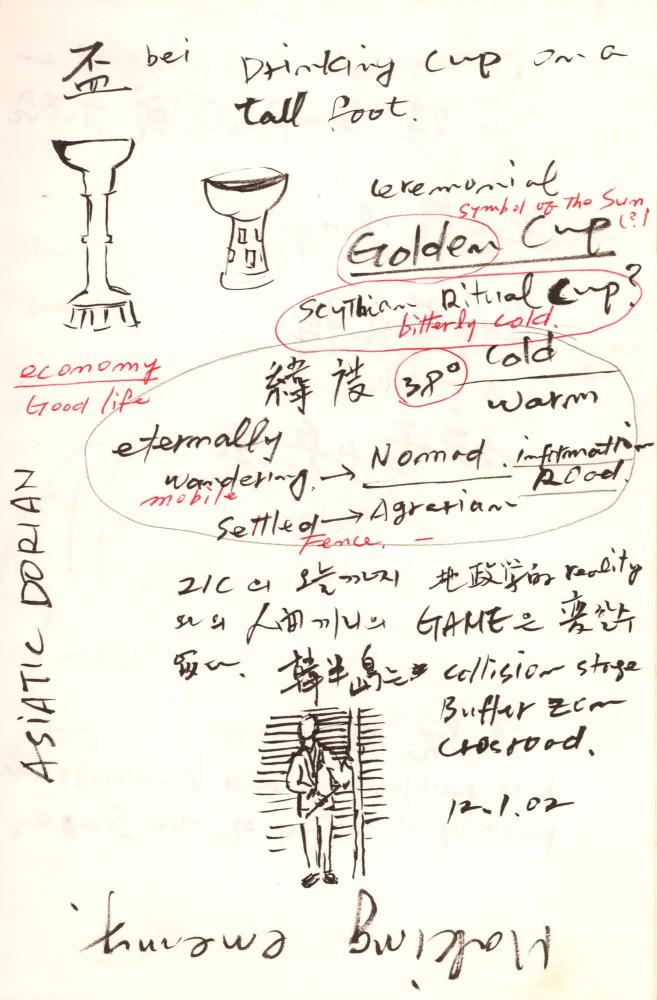 盃 bei Drinking Cup on a
tall foot.
ceremonial
symbol of the Sun
(?)
Golden Cup
Scythian Ritual Cup?
bitterly cold.
economy
Good life
緯度 38° Cold
warm
eternally
wandering. → Nomad. information
mobile ROad.
Settled → Agrarian
Fence. –
ASIATIC DORIAN
21C의 오늘까지 地政学的 reality
와의 人間끼리의 GAME은 変할수
없다. 韓半島는 collision stage
Buffer Zone
Crosroad.
12.1.02
Making enemy.